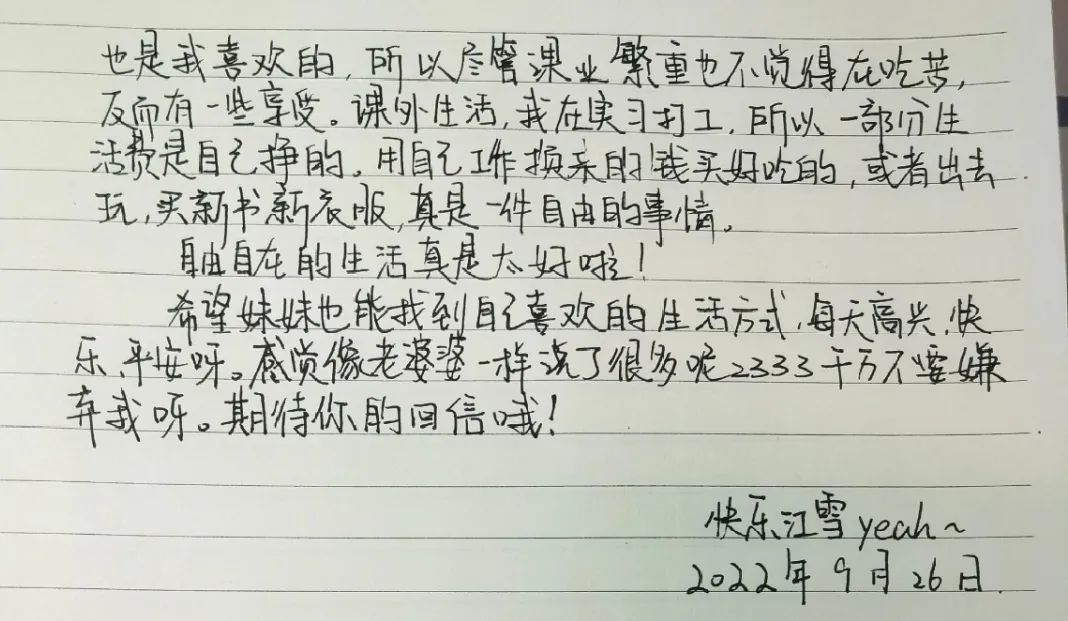 也是我喜欢的，所以尽管课业繁重也不觉得在吃苦，
反而有一些享受。课外生活，我在实习打工，所以一部分生
活费是自己挣的。用自己工作换来的钱买好吃的，或者出去
玩，买新书新衣服，真是一件自由的事情。
自由自在的生活真是太好啦！
希望妹妹也能找到自己喜欢的生活方式，每天高兴、快
乐、平安呀。感觉像老婆婆一样说了很多呢2333千万不要嫌
弃我呀。期待你的回信哦！
快乐江雪yeah~
2022年9月26日.